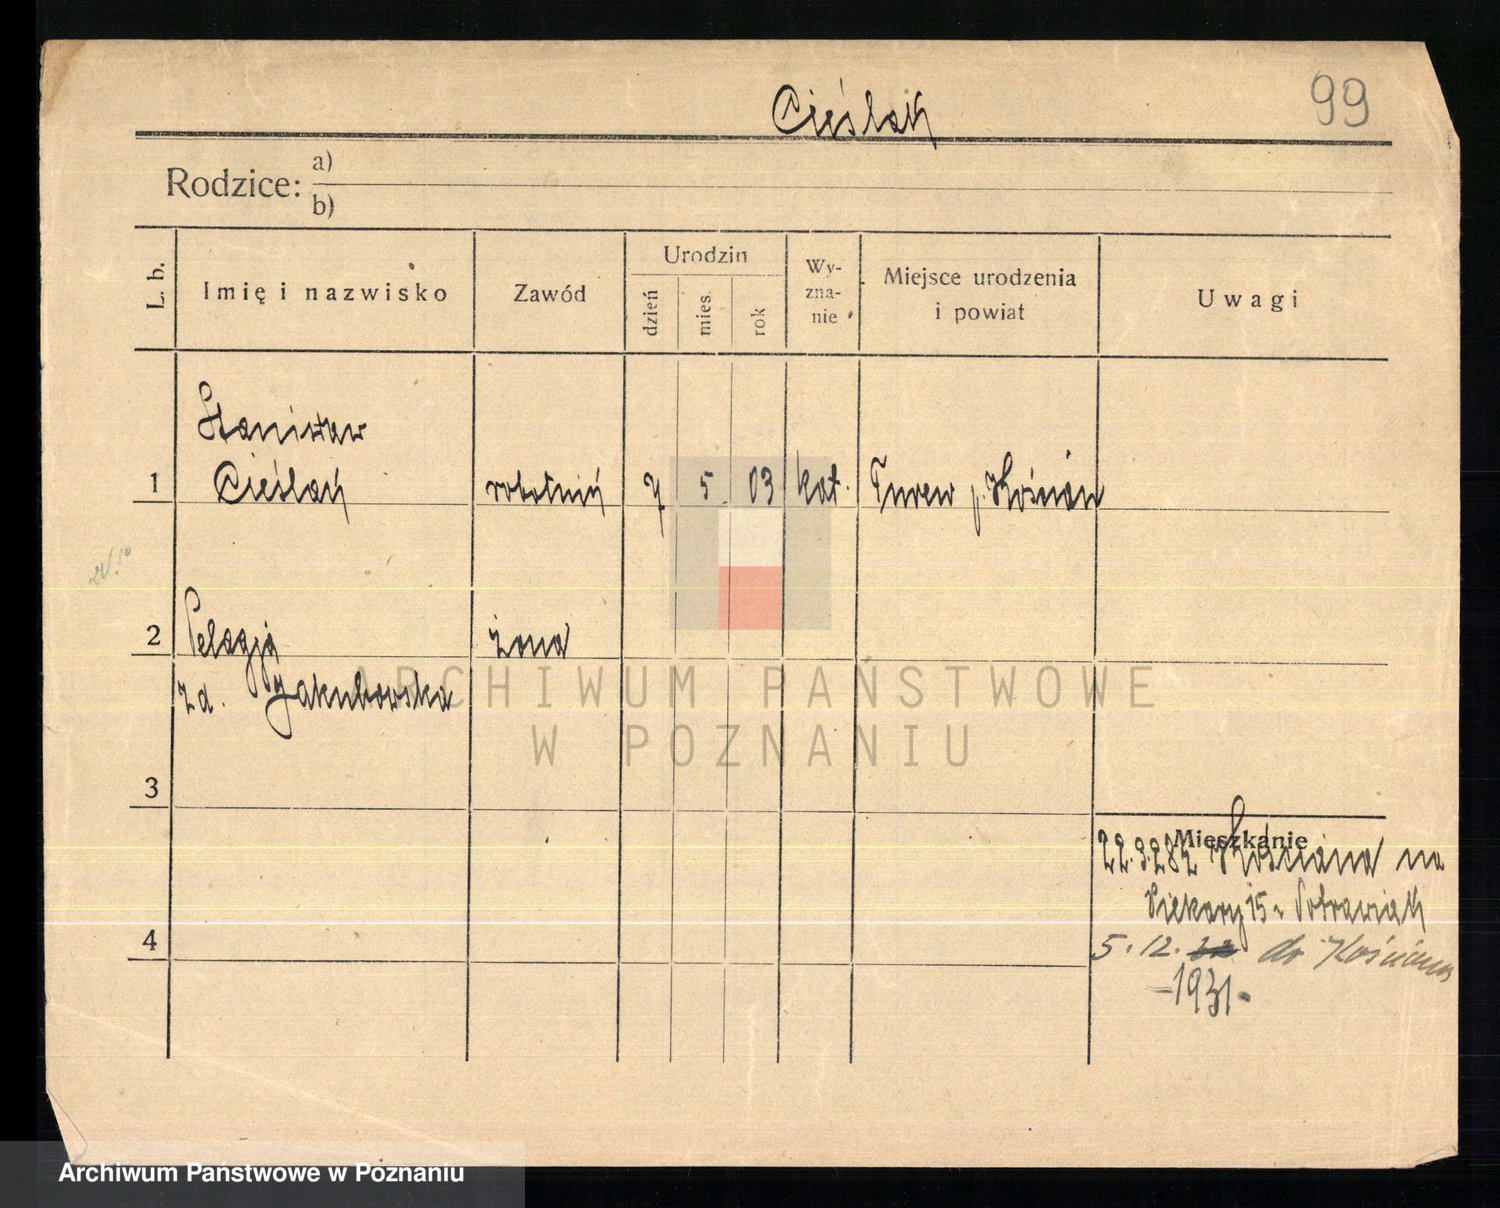 Cieślak
99
Rodzice: a)
b)
L. b.
Imię i nazwisko
Zawód
Urodzin
dzień
mies.
rok
Wy-
zna-
nie
Miejsce urodzenia
i powiat
Uwagi
Stanisław
1 Cieślak robotnik 7 5 03 kat. Turew p. Kościan
2 Pelagja żona
zd. Jakubowska
ARCHIWUM PAŃSTWOWE
W POZNANIU
3
Mieszkanie
22.9. z Kościana na
Piekary 15
4
5.12. do Kościana
-1931-
Archiwum Państwowe w Poznaniu